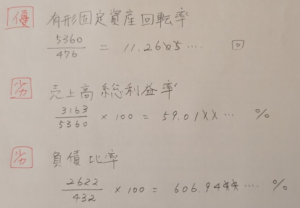 優 有形固定資産回転率
5360/476 = 11.2605… 回
劣 売上高総利益率
3163/5360 × 100 = 59.01… %
劣 負債比率
2622/432 × 100 = 606.944… %